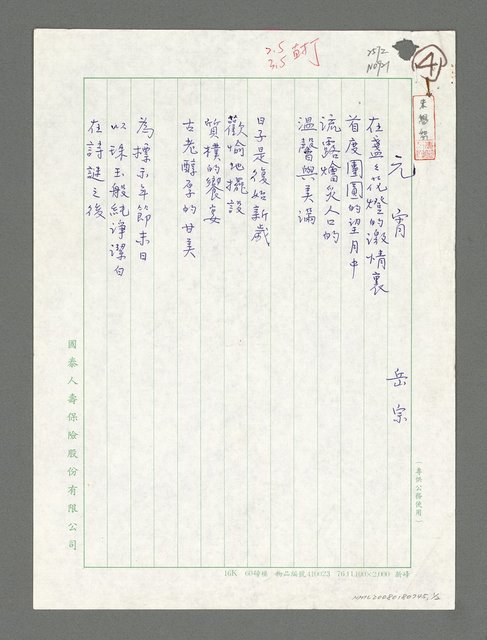 2.5
3.5
25/2
No 21
4
元宵
岳宗
在盞盞花燈的激情裏
首度團圓的望月中
流露燴炙人口的
溫馨與美滿
日子是復始新歲
歡愉地擺設
質樸的饗宴
古老醇厚的甘美
為標示季節末日
以珠玉般純淨潔白
在詩謎之後
國泰人壽保險股份有限公司
(專供公務使用)
16K 60磅模 物品編號410023 76.11.100×2,000 新峰
NMTL20080180745, 1/2